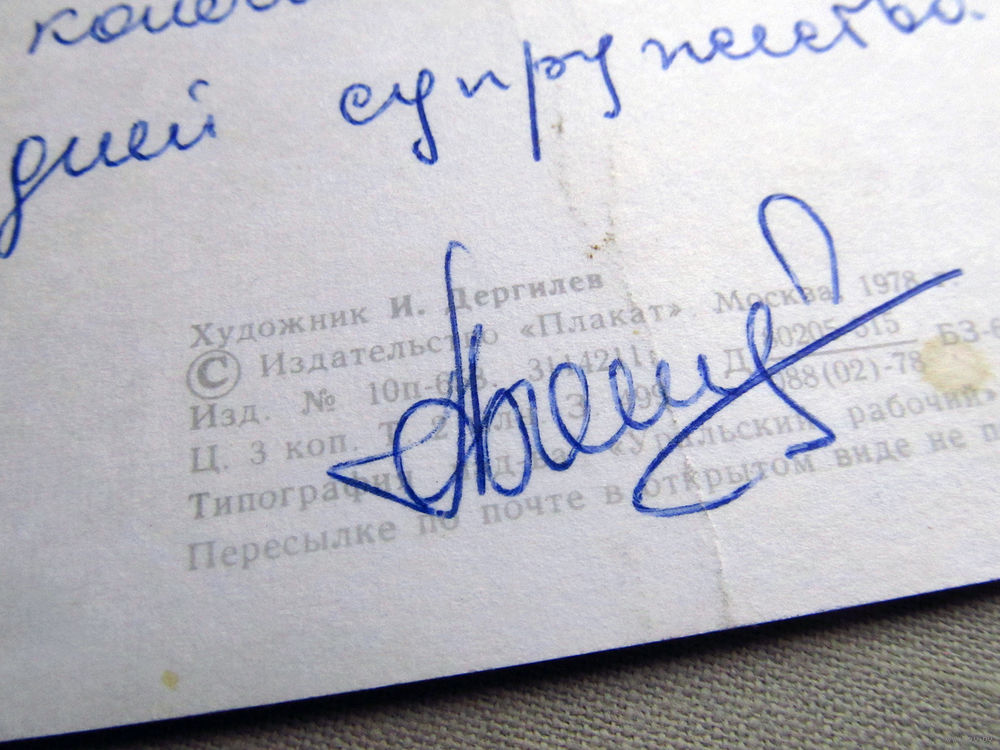 дней супружества.
Художник И. Дергилев
© Издательство «Плакат». Москва, 1978 г.
Изд. № 10п-638. 3114211; Д 80205-615 БЗ-6
Ц. 3 коп. Т. 2 088(02)-78
Типография изд-ва «Уральский рабочий»
Пересылке по почте в открытом виде не п